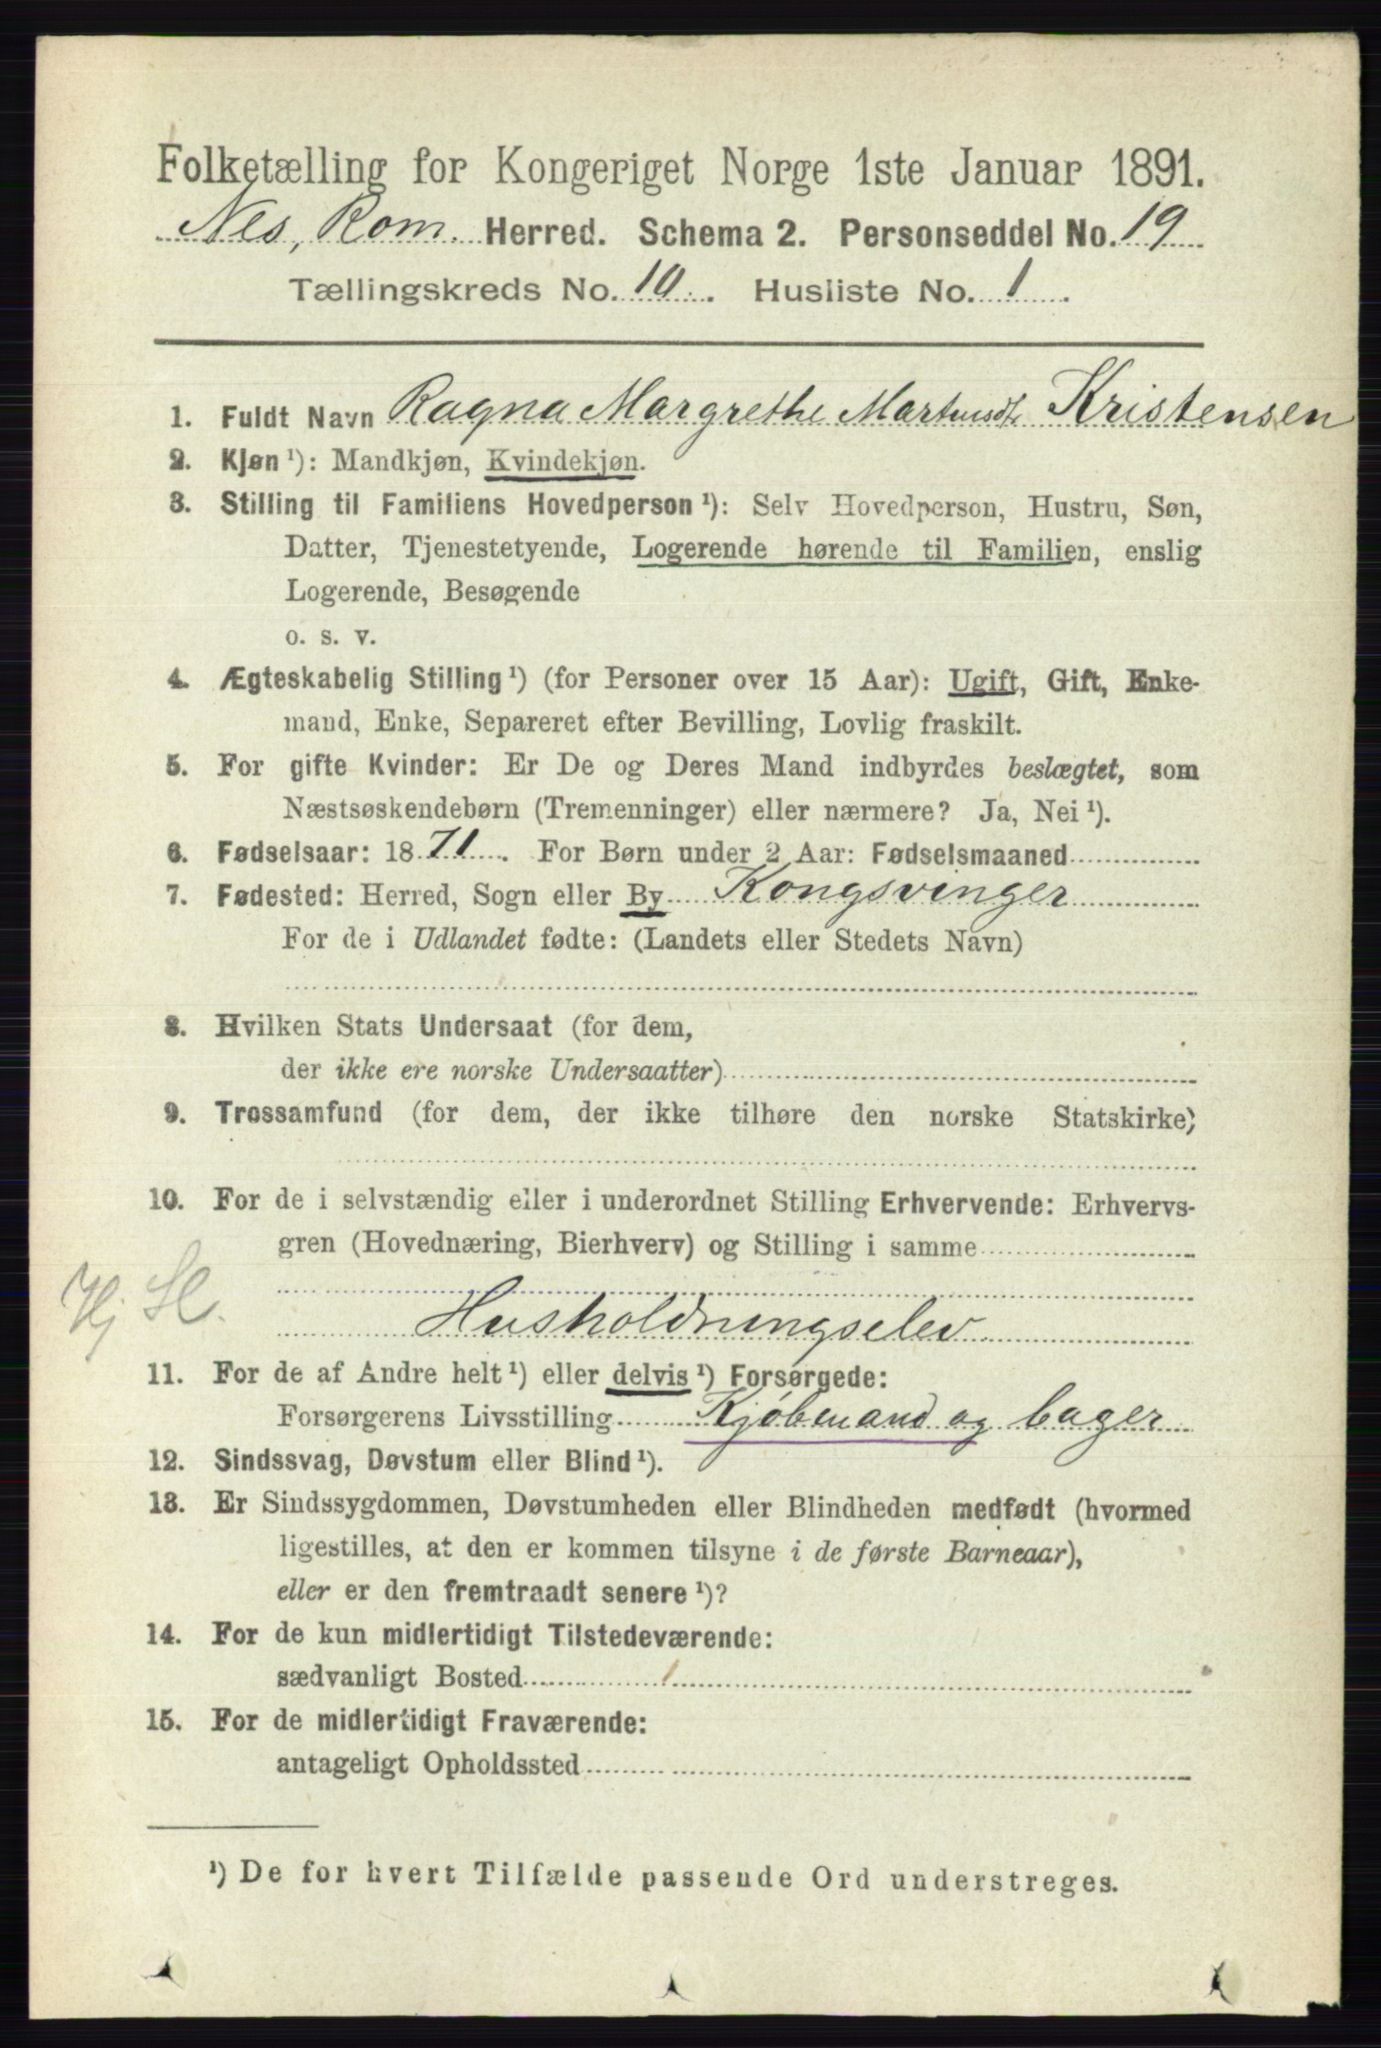 Folketælling for Kongeriget Norge 1ste Januar 1891.
Nes, Rom. Herred. Schema 2. Personseddel No. 19
Tællingskreds No. 10. Husliste No. 1.
1. Fuldt Navn Ragna Margrethe Kristensen
2. Kjøn ¹): Mandkjøn, Kvindekjøn.
3. Stilling til Familiens Hovedperson ¹): Selv Hovedperson, Hustru, Søn,
Datter, Tjenestetyende, Logerende hørende til Familien, enslig
Logerende, Besøgende
o. s. v.
4. Ægteskabelig Stilling ¹) (for Personer over 15 Aar): Ugift, Gift, Enke-
mand, Enke, Separeret efter Bevilling, Lovlig fraskilt.
5. For gifte Kvinder: Er De og Deres Mand indbyrdes beslægtet, som
Næstsøskendebørn (Tremenninger) eller nærmere? Ja, Nei ¹).
6. Fødselsaar: 1871. For Børn under 2 Aar: Fødselsmaaned
7. Fødested: Herred, Sogn eller By Kongsvinger
For de i Udlandet fødte: (Landets eller Stedets Navn)
8. Hvilken Stats Undersaat (for dem,
der ikke ere norske Undersaatter)
9. Trossamfund (for dem, der ikke tilhøre den norske Statskirke)
10. For de i selvstændig eller i underordnet Stilling Erhvervende: Erhvervs-
gren (Hovednæring, Bierhverv) og Stilling i samme
Hj
Husholdningselev.
11. For de af Andre helt ¹) eller delvis ¹) Forsørgede:
Forsørgerens Livsstilling Kjøbmand og bager
12. Sindssvag, Døvstum eller Blind ¹).
13. Er Sindssygdommen, Døvstumheden eller Blindheden medfødt (hvormed
ligestilles, at den er kommen tilsyne i de første Barneaar),
eller er den fremtraadt senere ¹)?
14. For de kun midlertidigt Tilstedeværende:
sædvanligt Bosted
15. For de midlertidigt Fraværende:
antageligt Opholdssted
¹) De for hvert Tilfælde passende Ord understreges.